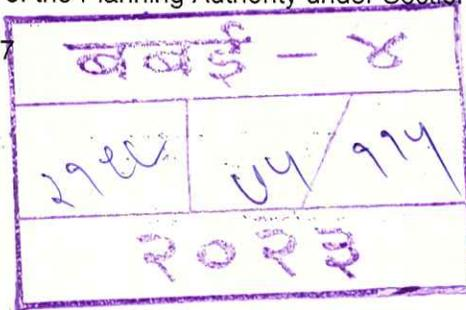 the Planning Authority under
7
बबई - ४
२१९८ ७५ / ११५
२०२३